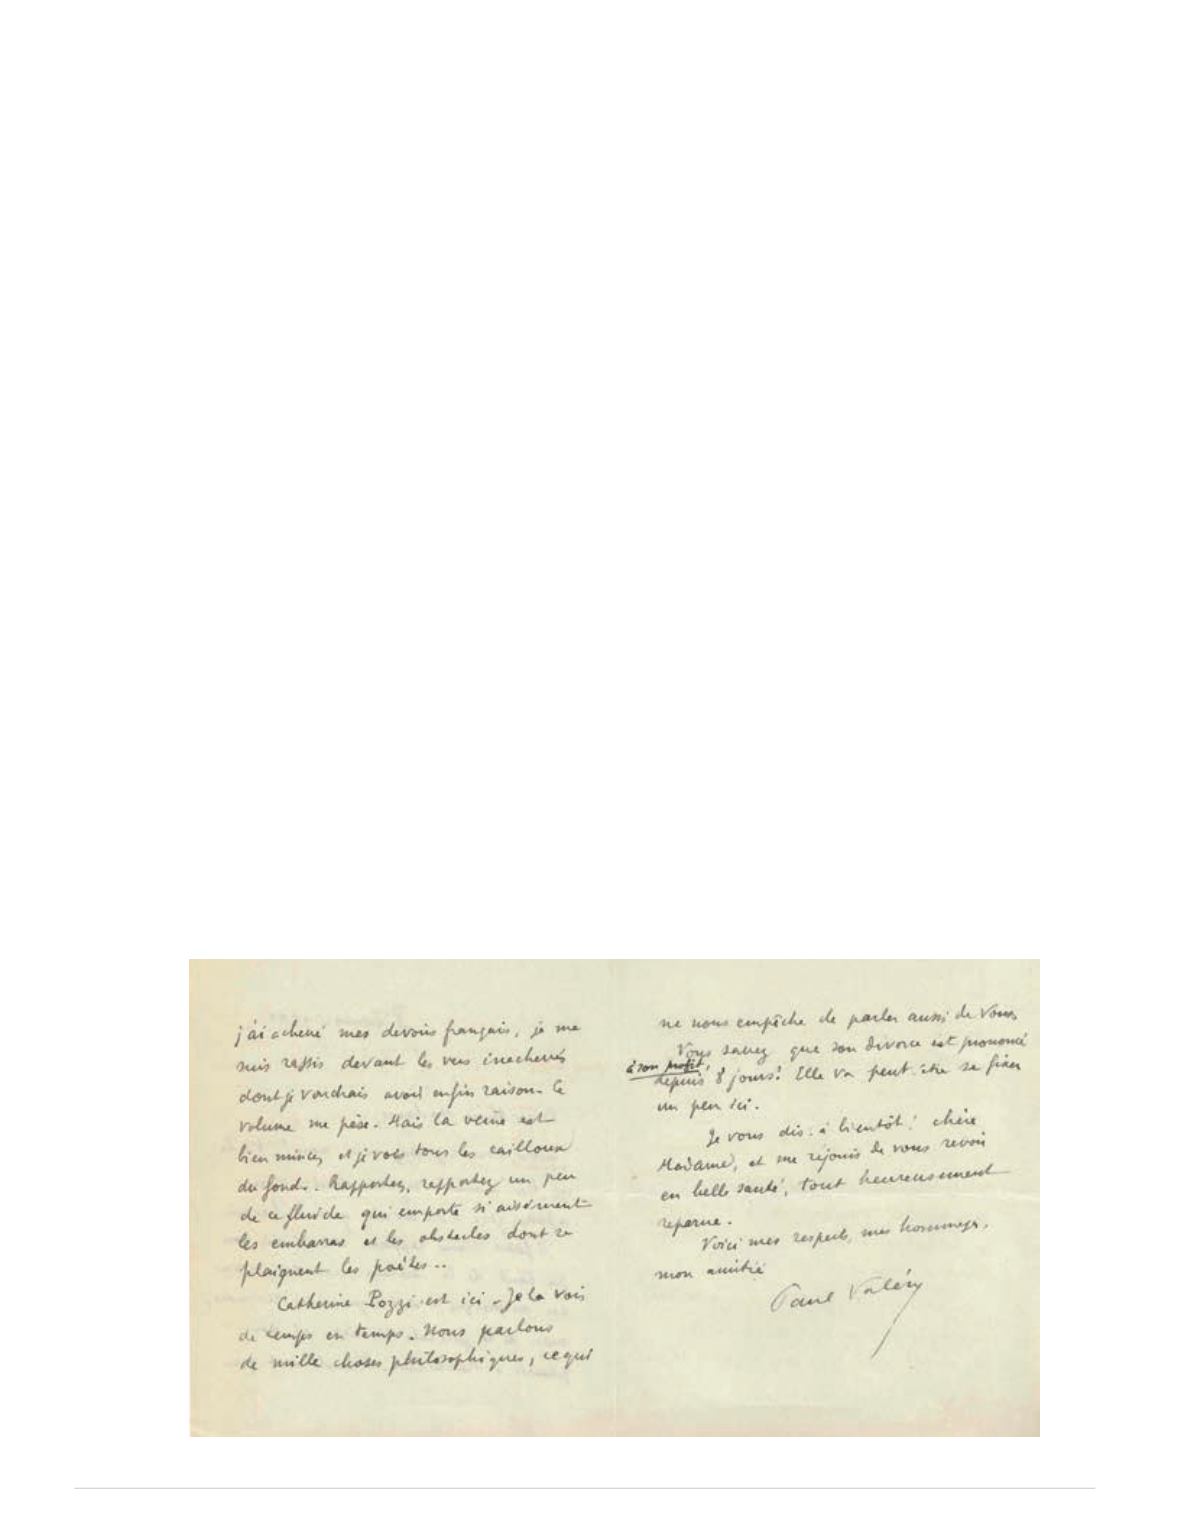 j'ai achevé mes devoirs français, je me
suis rassis devant les vers inachevés
dont je voudrais avoir enfin raison. Ce
volume me pèse. Mais la veine est
bien mince, et je vois tous les cailloux
du fond. Rapportez, rapportez un peu
de ce fluide qui emporte si aisément
les embarras et les obstacles dont se
plaignent les poètes..
Catherine Pozzi est ici. Je la vois
de temps en temps. Nous parlons
de mille choses philosophiques, ce qui
ne nous empêche de parler aussi de vous.
Vous savez que son divorce est prononcé
à son profit,
depuis 8 jours! Elle va peut-être se fixer
un peu ici.
Je vous dis: à bientôt! chère
Madame, et me réjouis de vous revoir
en belle santé, tout heureusement
reparue.
Voici mes respects, mes hommages,
mon amitié
Paul Valéry